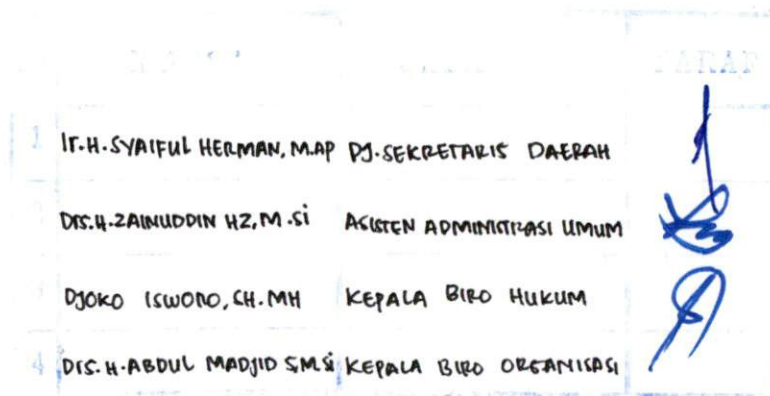 PARAF
1 Ir.H.SYAIFUL HERMAN, M.AP PJ.SEKRETARIS DAERAH
Drs.H.ZAINUDDIN HZ, M.Si ASISTEN ADMINISTRASI UMUM
DJOKO ISWORO, SH.MH KEPALA BIRO HUKUM
4 Drs.H.ABDUL MADJID S,M.Si KEPALA BIRO ORGANISASI